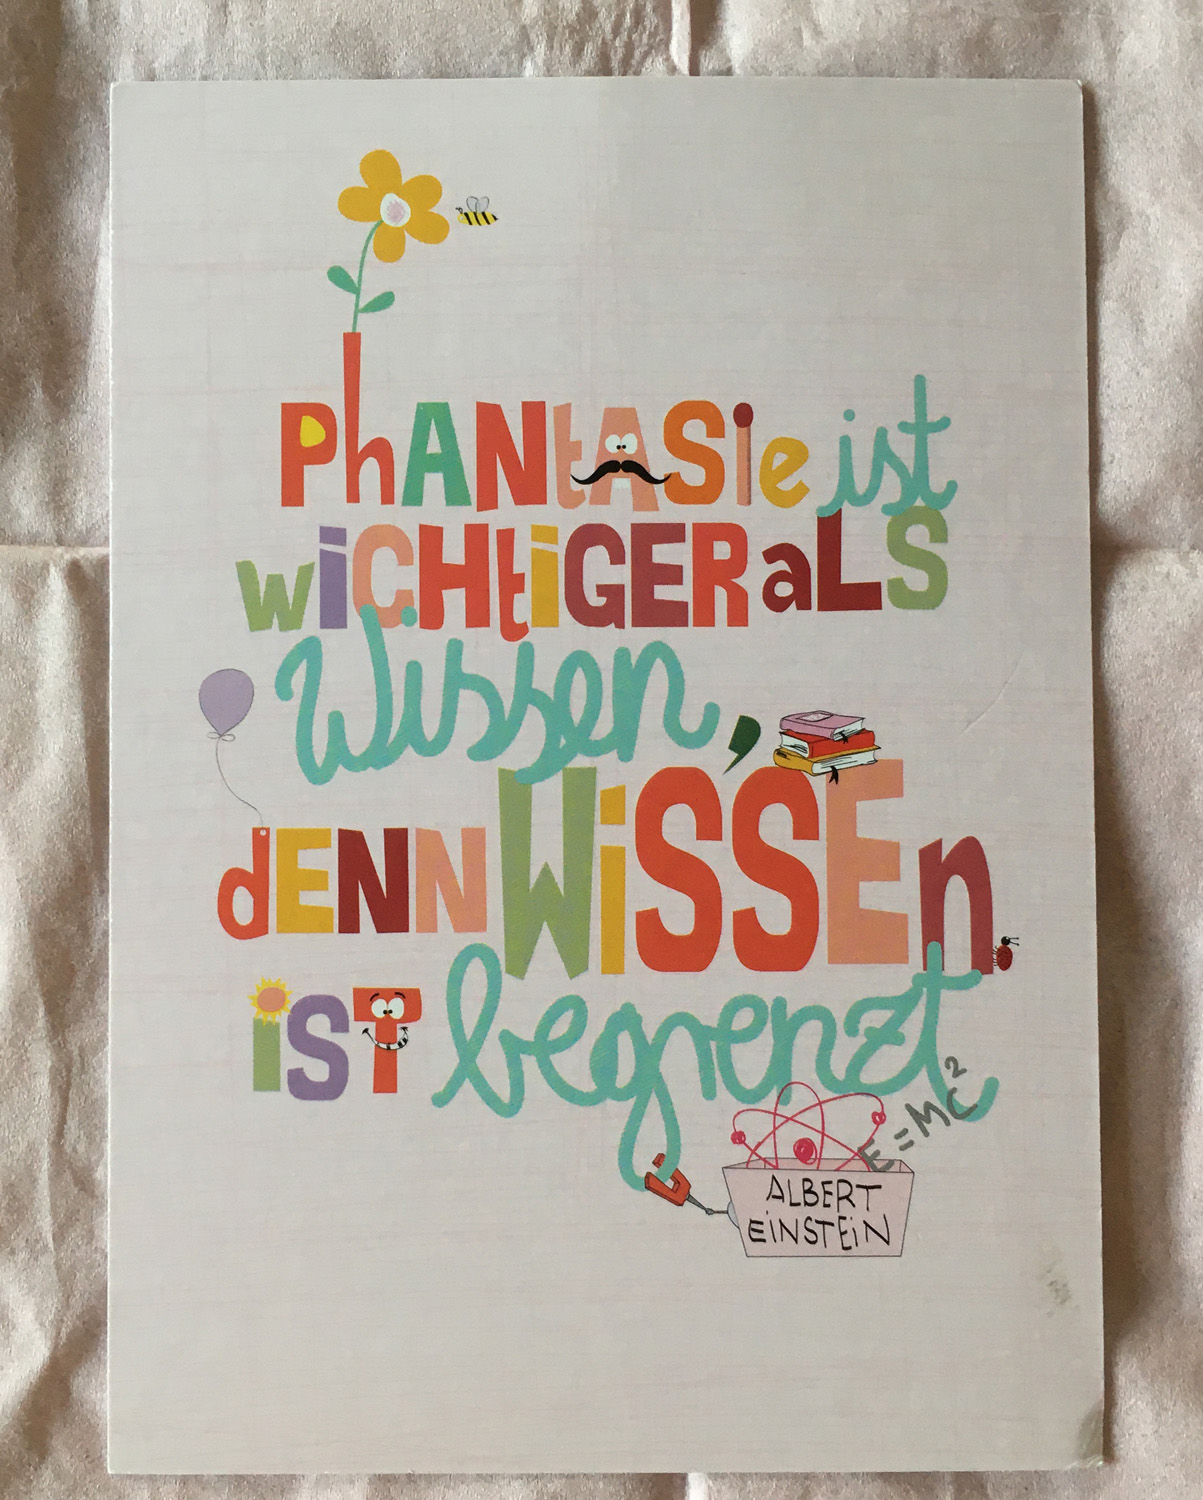 PhANtASie ist
wiCHtiGER aLS
Wissen,
dENN WiSSEn
iST begrenzt
E=MC²
ALBERT
EiNSTEiN